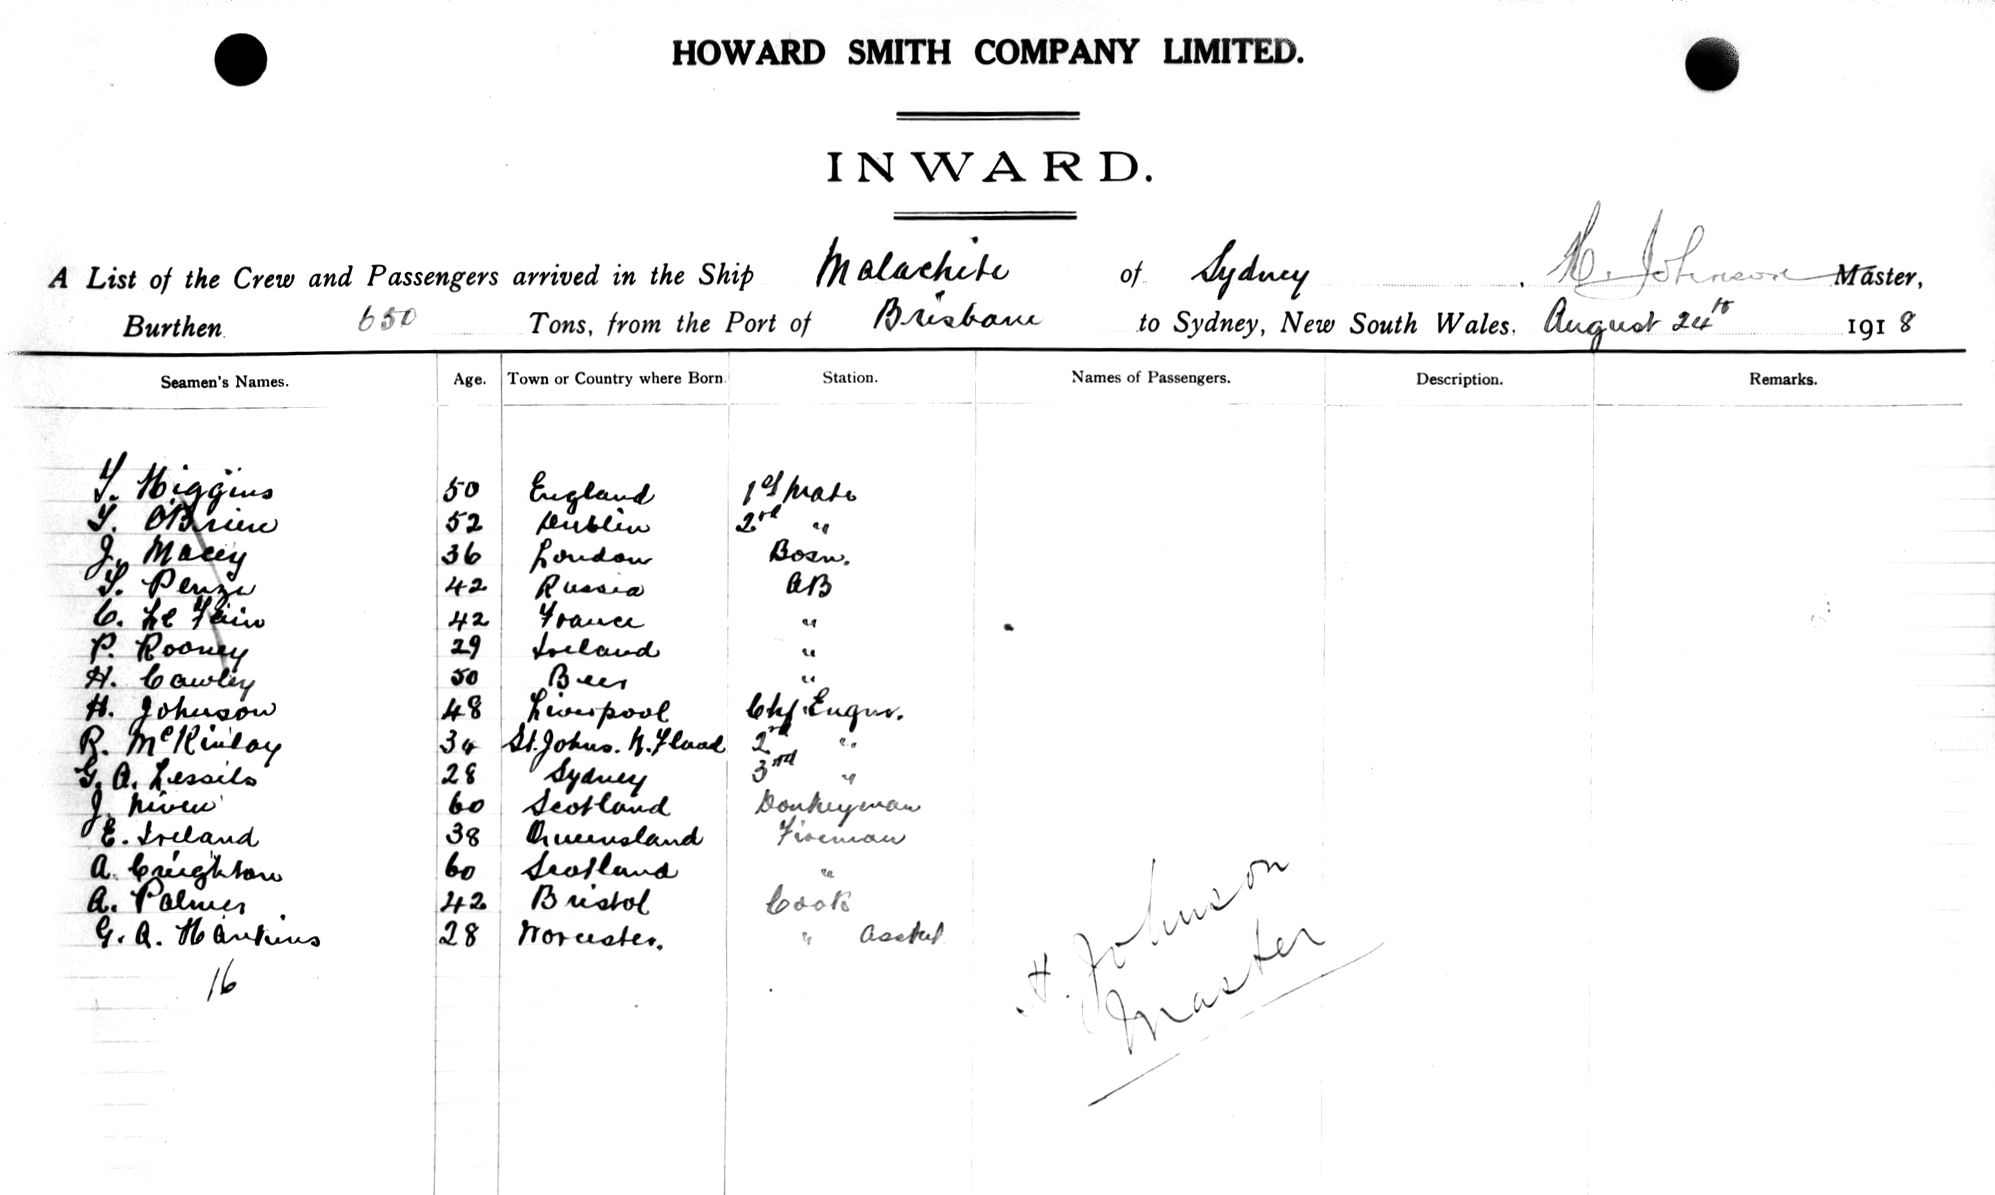 HOWARD SMITH COMPANY LIMITED.
INWARD.
A List of the Crew and Passengers arrived in the Ship Malachite of Sydney, H. Johnson Master,
Burthen 650 Tons, from the Port of Brisbane to Sydney, New South Wales. August 24th 1918
Seamen's Names. Age. Town or Country where Born. Station. Names of Passengers. Description. Remarks.
T. Higgins 50 England 1st Mate
T. O'Brien 52 Dublin 2nd "
J. Macey 36 London Bosn.
42 Russia AB
C. Le 42 France "
P. Rooney 29 Ireland "
H. Cawley 50 "
H. Johnson 48 Liverpool Chf. Engnr.
R. McKinlay 34 St. Johns. N. Fland 2nd "
G. A. 28 Sydney 3rd "
J. Niven 60 Scotland Donkeyman
E. Ireland 38 Queensland Fireman
A. Creighton 60 Scotland "
A. Palmer 42 Bristol Cook
G. A. Hankins 28 Worcester. "
16
H. Johnson
Master